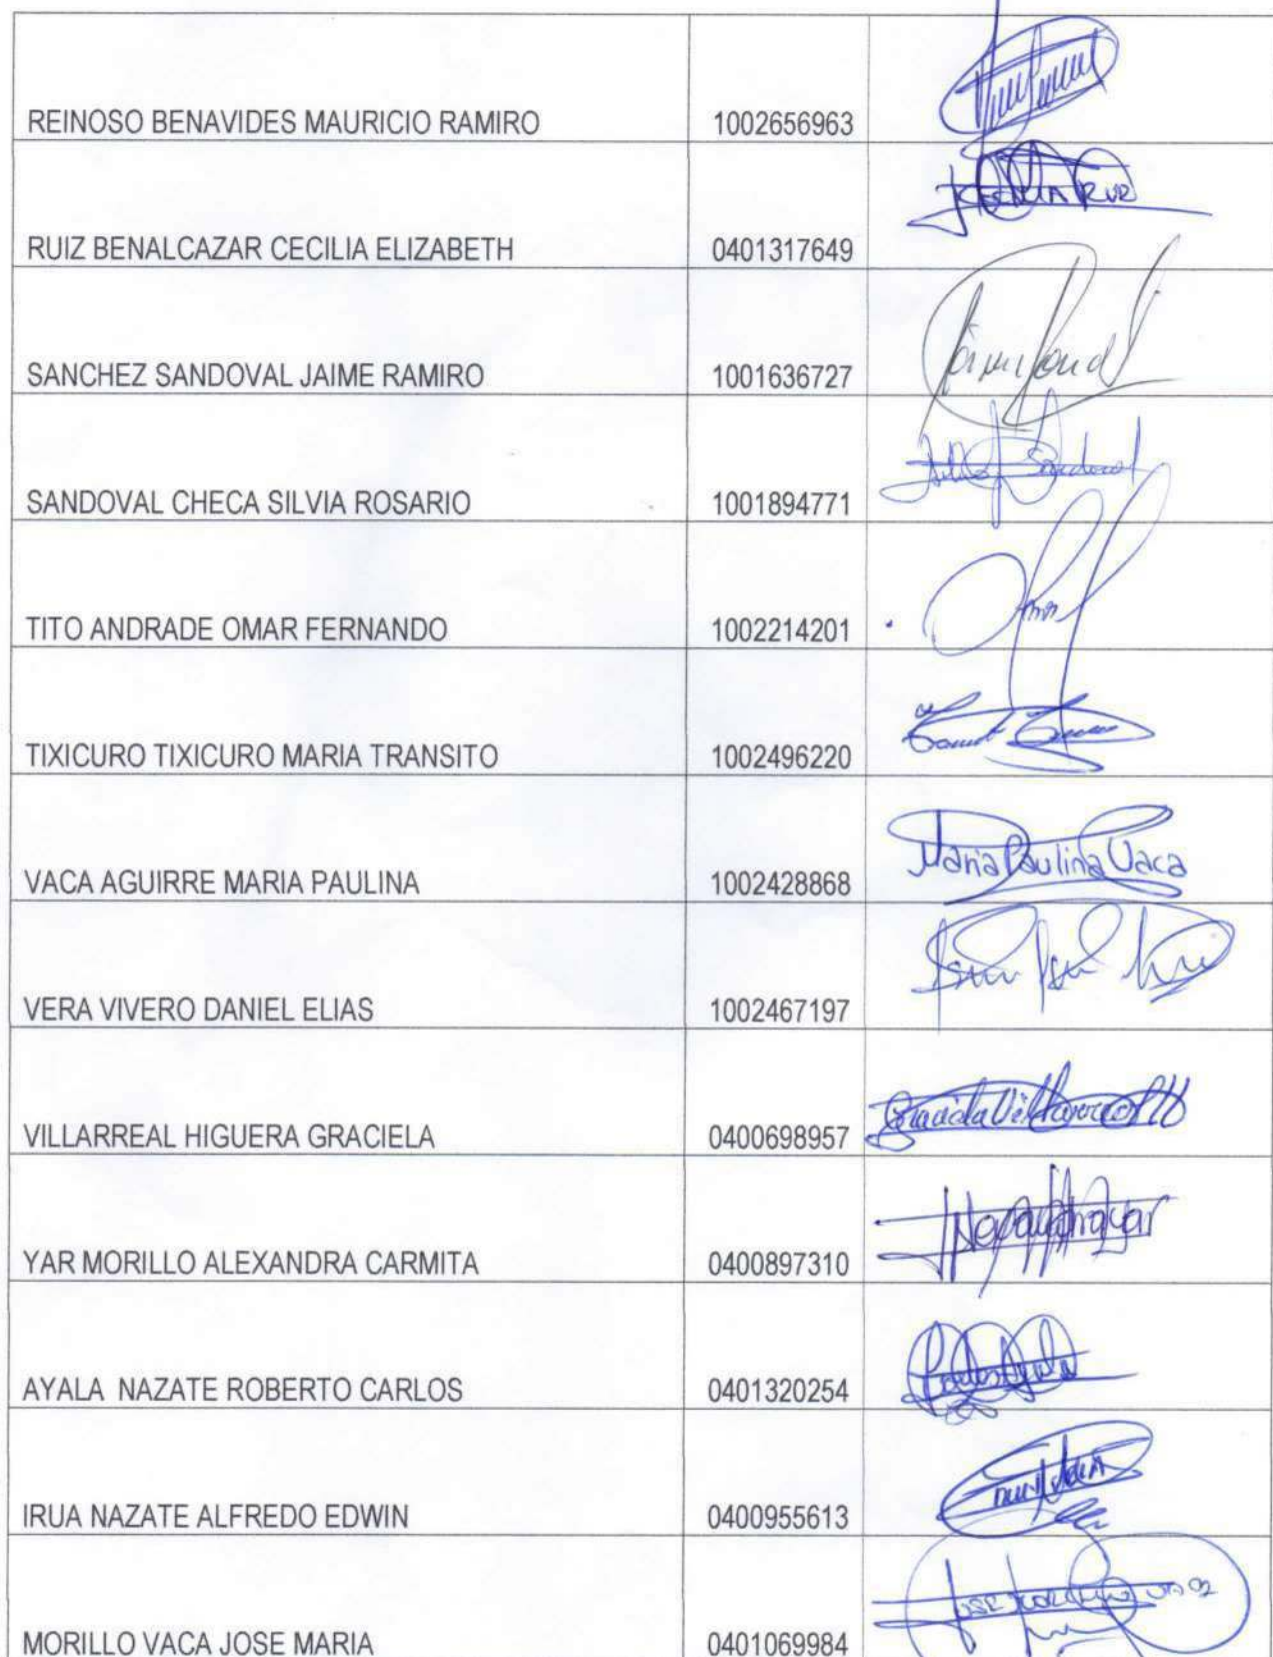 REINOSO BENAVIDES MAURICIO RAMIRO 1002656963
RUIZ BENALCAZAR CECILIA ELIZABETH 0401317649 CECILIA RUIZ
SANCHEZ SANDOVAL JAIME RAMIRO 1001636727
SANDOVAL CHECA SILVIA ROSARIO 1001894771 Sandoval
TITO ANDRADE OMAR FERNANDO 1002214201 Omar
TIXICURO TIXICURO MARIA TRANSITO 1002496220
VACA AGUIRRE MARIA PAULINA 1002428868 Maria Paulina Vaca
VERA VIVERO DANIEL ELIAS 1002467197
VILLARREAL HIGUERA GRACIELA 0400698957 Graciela Villarreal H
YAR MORILLO ALEXANDRA CARMITA 0400897310
AYALA NAZATE ROBERTO CARLOS 0401320254 Carlos Ayala
IRUA NAZATE ALFREDO EDWIN 0400955613
MORILLO VACA JOSE MARIA 0401069984